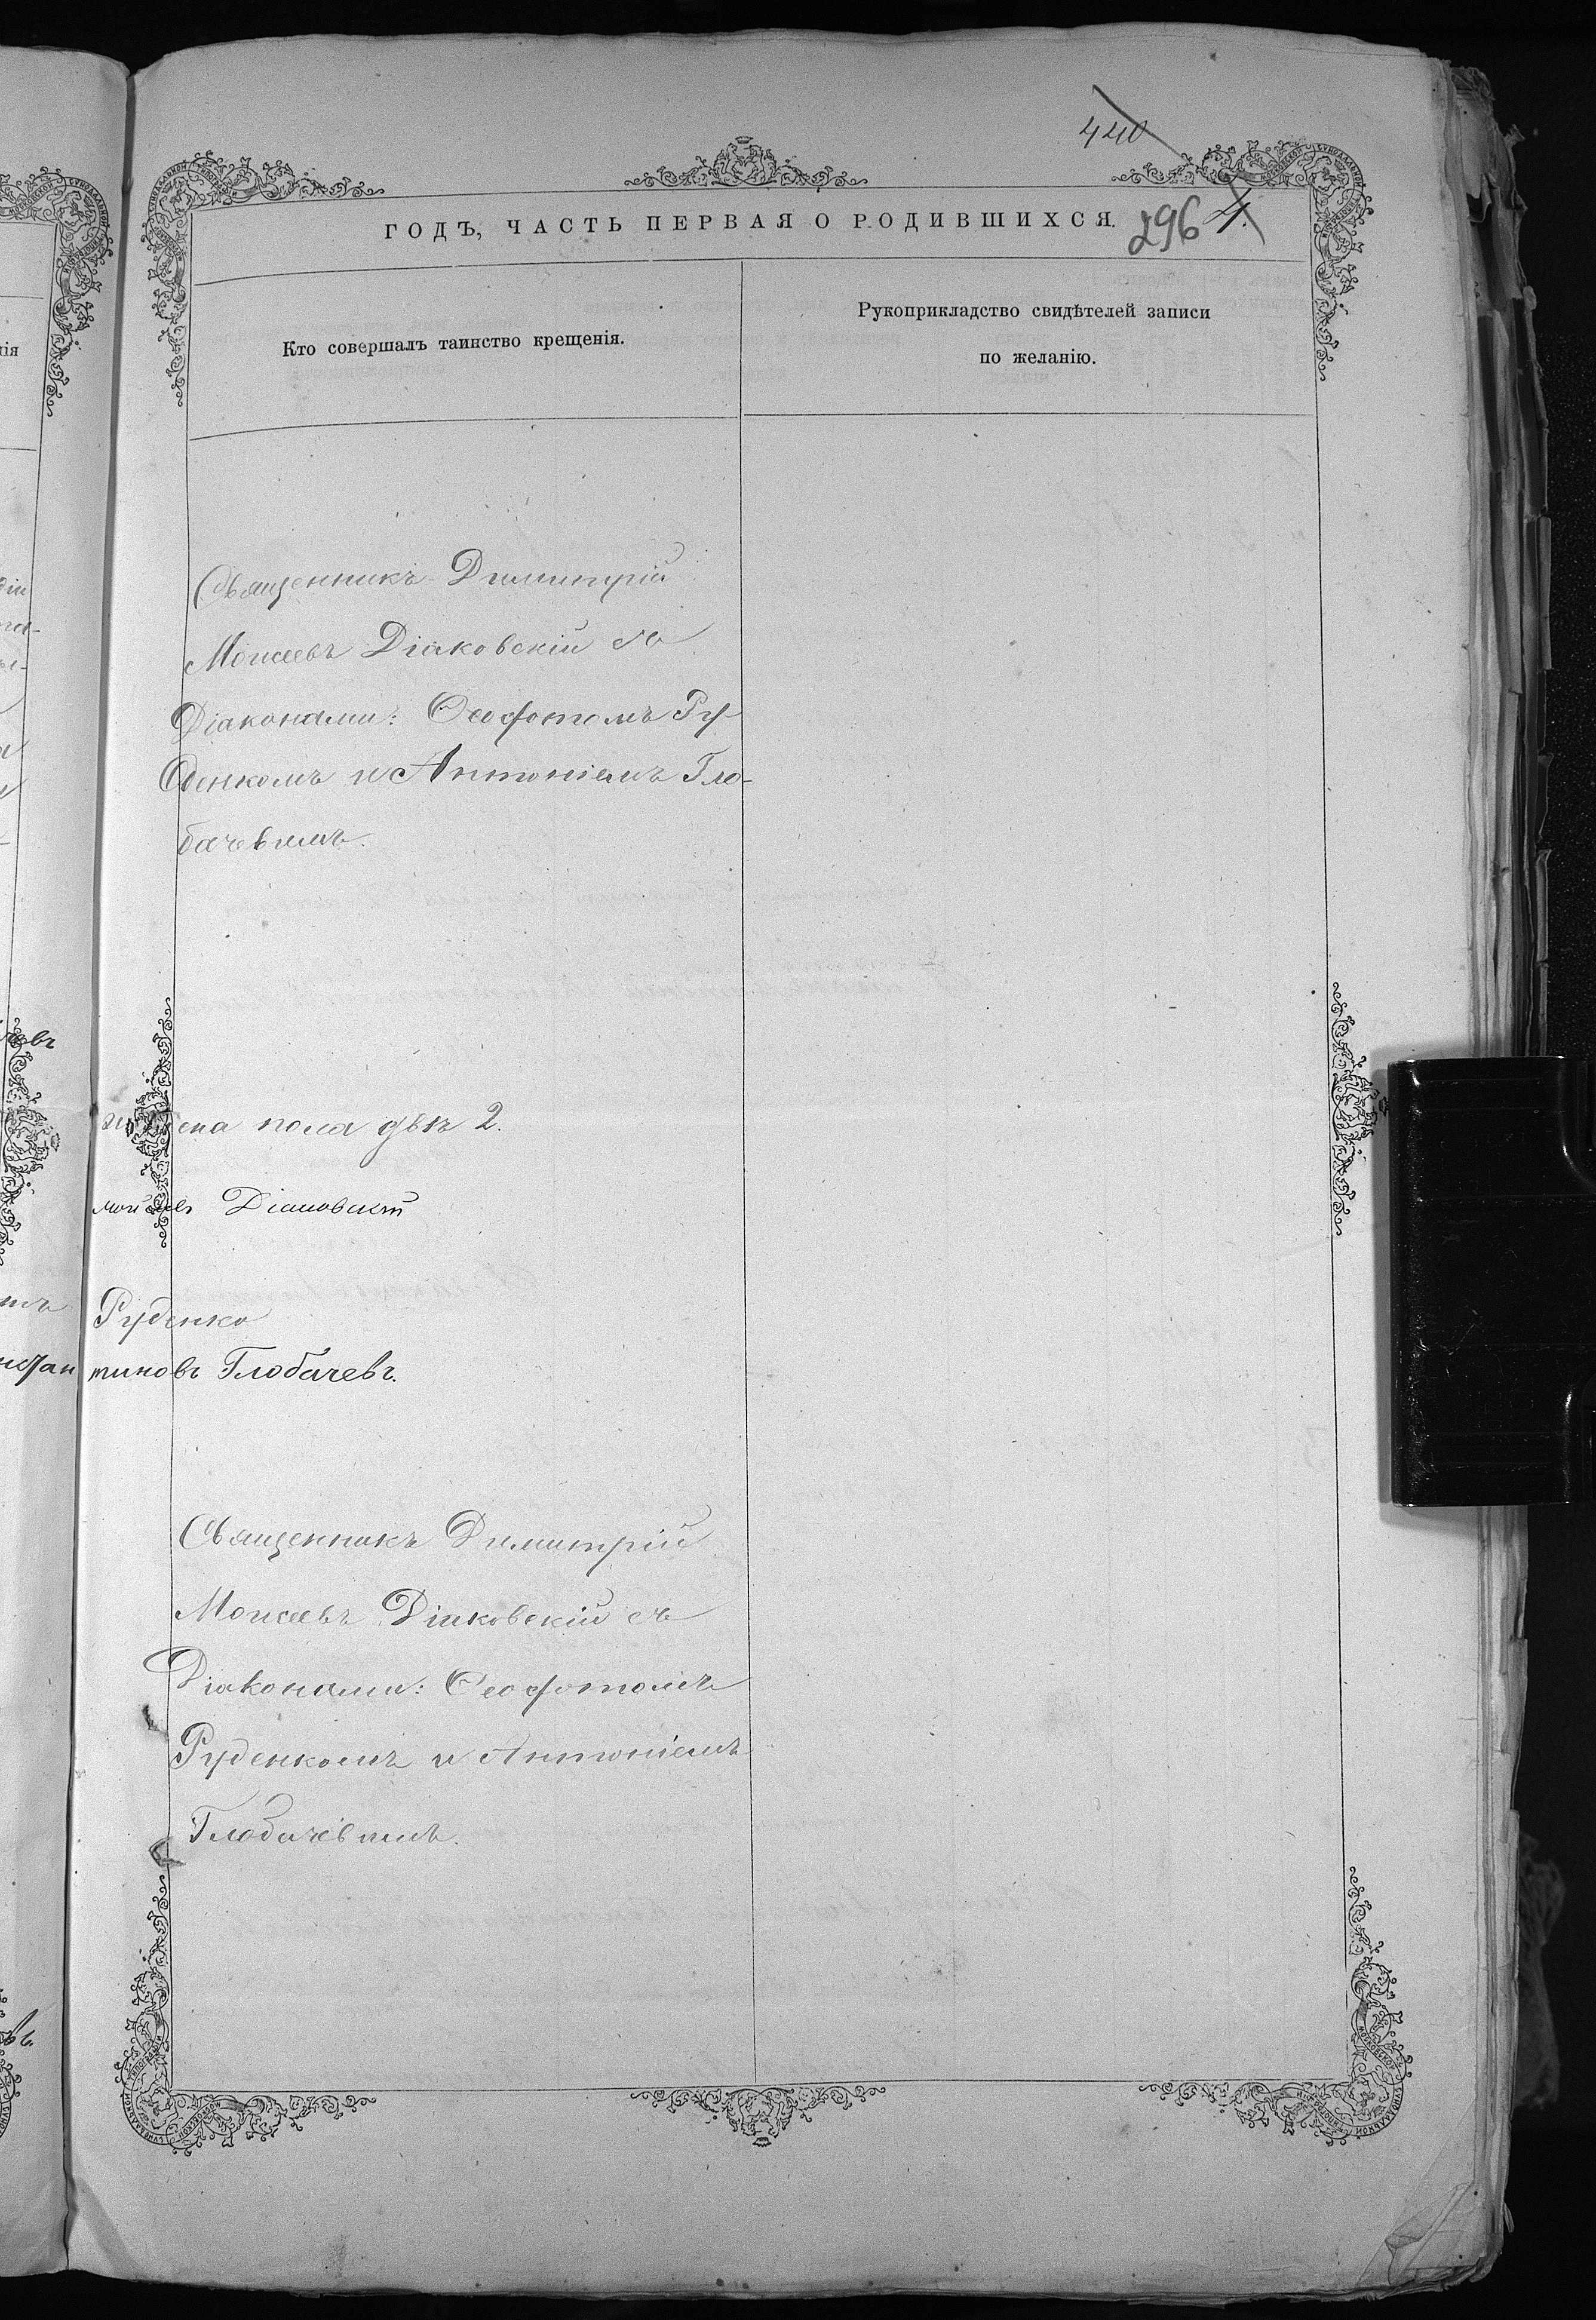 440
ГОДЪ, ЧАСТЬ ПЕРВАЯ О РОДИВШИХСЯ.
296 4.
Кто совершалъ таинство крещенія.
Рукоприкладство свидѣтелей записи
по желанію.
Священникъ Димитрій
Моисеевъ Діаковскій съ
Діаконами: Ѳеофотомъ Ру-
денкомъ и Антоніемъ Гло-
бачевымъ.
пола двѣ 2.
Діаковскій
Руденко
тиновъ Глобачевъ.
Священникъ Димитрій
Моисеевъ Діаковскій съ
Діаконами: Ѳеофотомъ
Руденкомъ и Антоніемъ
Глобачевымъ.